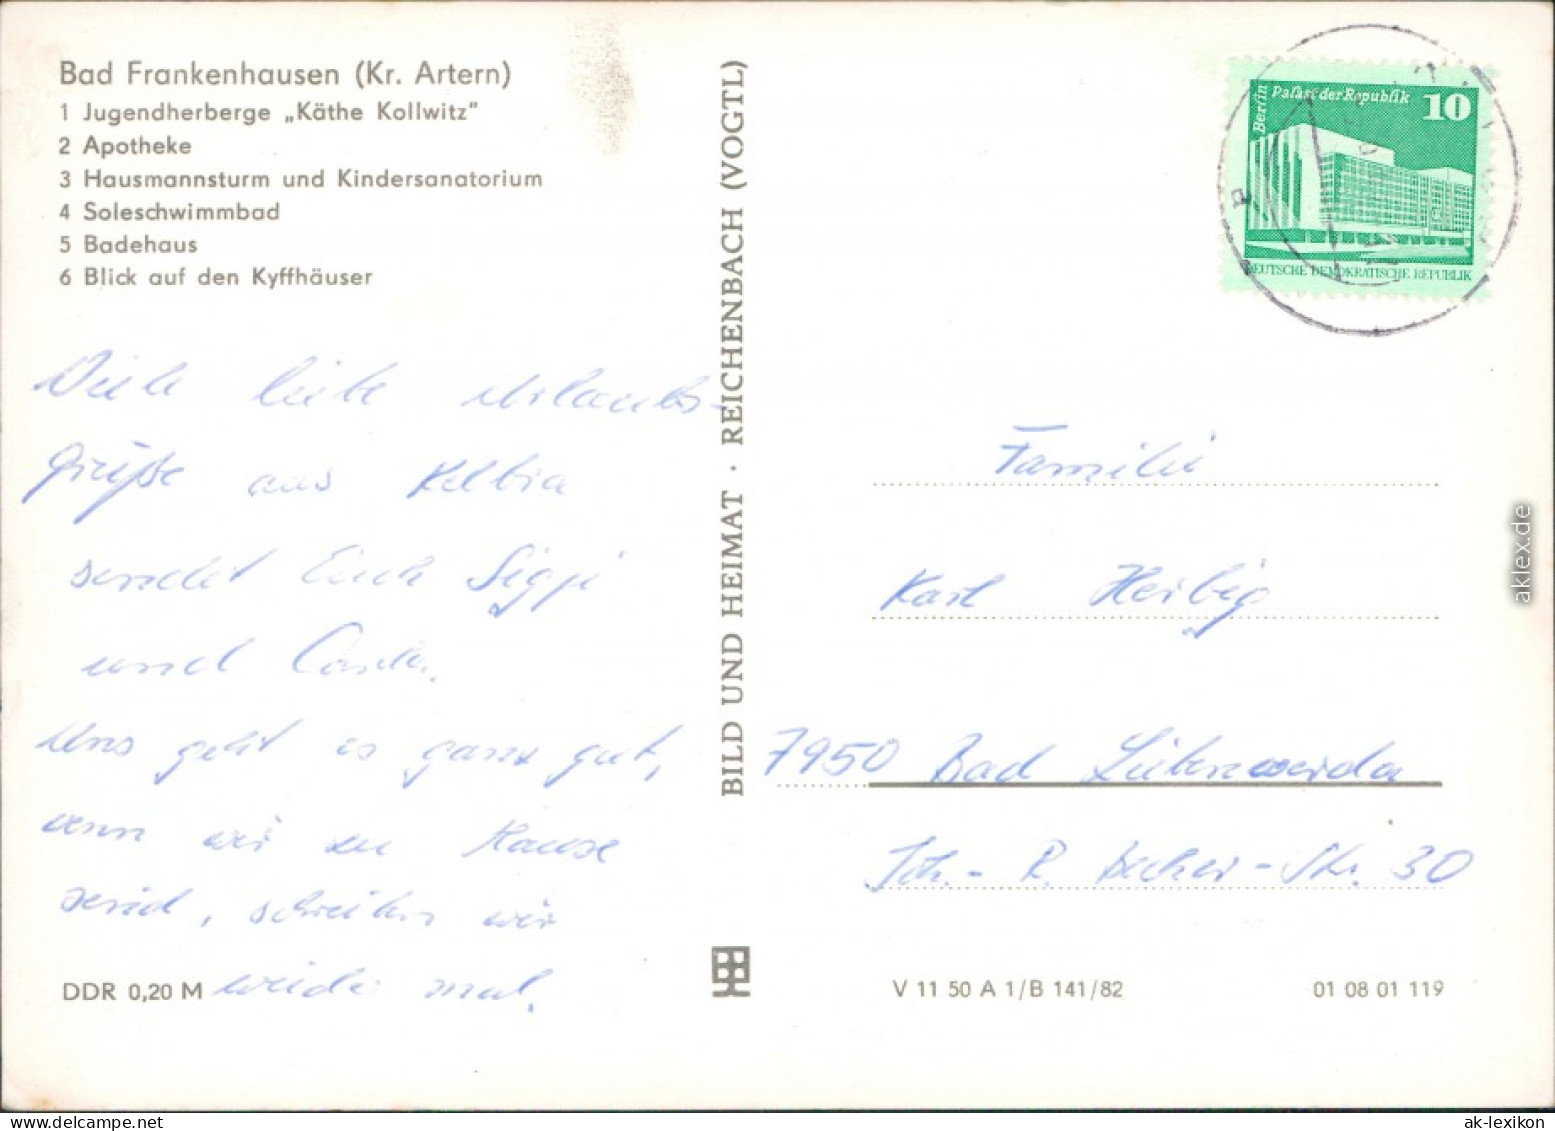 Bad Frankenhausen (Kr. Artern)
1 Jugendherberge „Käthe Kollwitz"
2 Apotheke
3 Hausmannsturm und Kindersanatorium
4 Soleschwimmbad
5 Badehaus
6 Blick auf den Kyffhäuser
Viele liebe Urlaubs-
grüße aus Kelbra
sendet Euch Siggi
und
Uns geht es ganz gut,
wenn wir zu Hause
sind, schreiben wir
wieder mal.
DDR 0,20 M
BILD UND HEIMAT · REICHENBACH (VOGTL)
Berlin
Palast der Republik 10
DEUTSCHE DEMOKRATISCHE REPUBLIK
Familie
Karl Herbig
7950 Bad Liebenwerda
Joh.- R. Becher-Str. 30
V 11 50 A 1/B 141/82
01 08 01 119
aklex.de
ak-lexikon